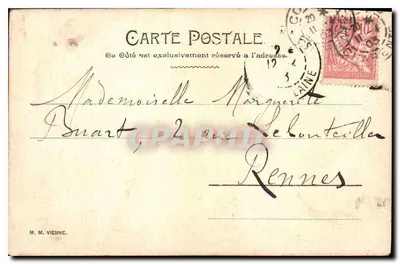 CARTE POSTALE
Ce Côté est exclusivement réservé à l'adresse.
Mademoiselle Marguerite
Buart, 2 rue Lebouteiller
Rennes
M. M. VIENNE.
LAINE